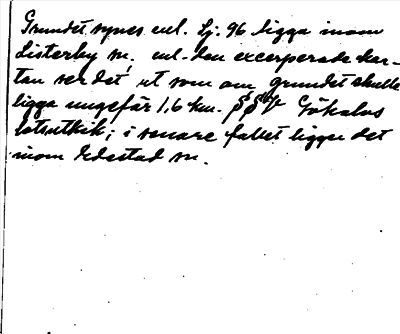 Grundet synes enl. Lj. 96 ligga inom
Listerby sn. enl. den excerperade kar-
tan ser det ut som om grundet skulle
ligga ungefär 1,6 km. Gökalvs
lotsutkik; i senare fallet ligger det
inom Edestad sn.